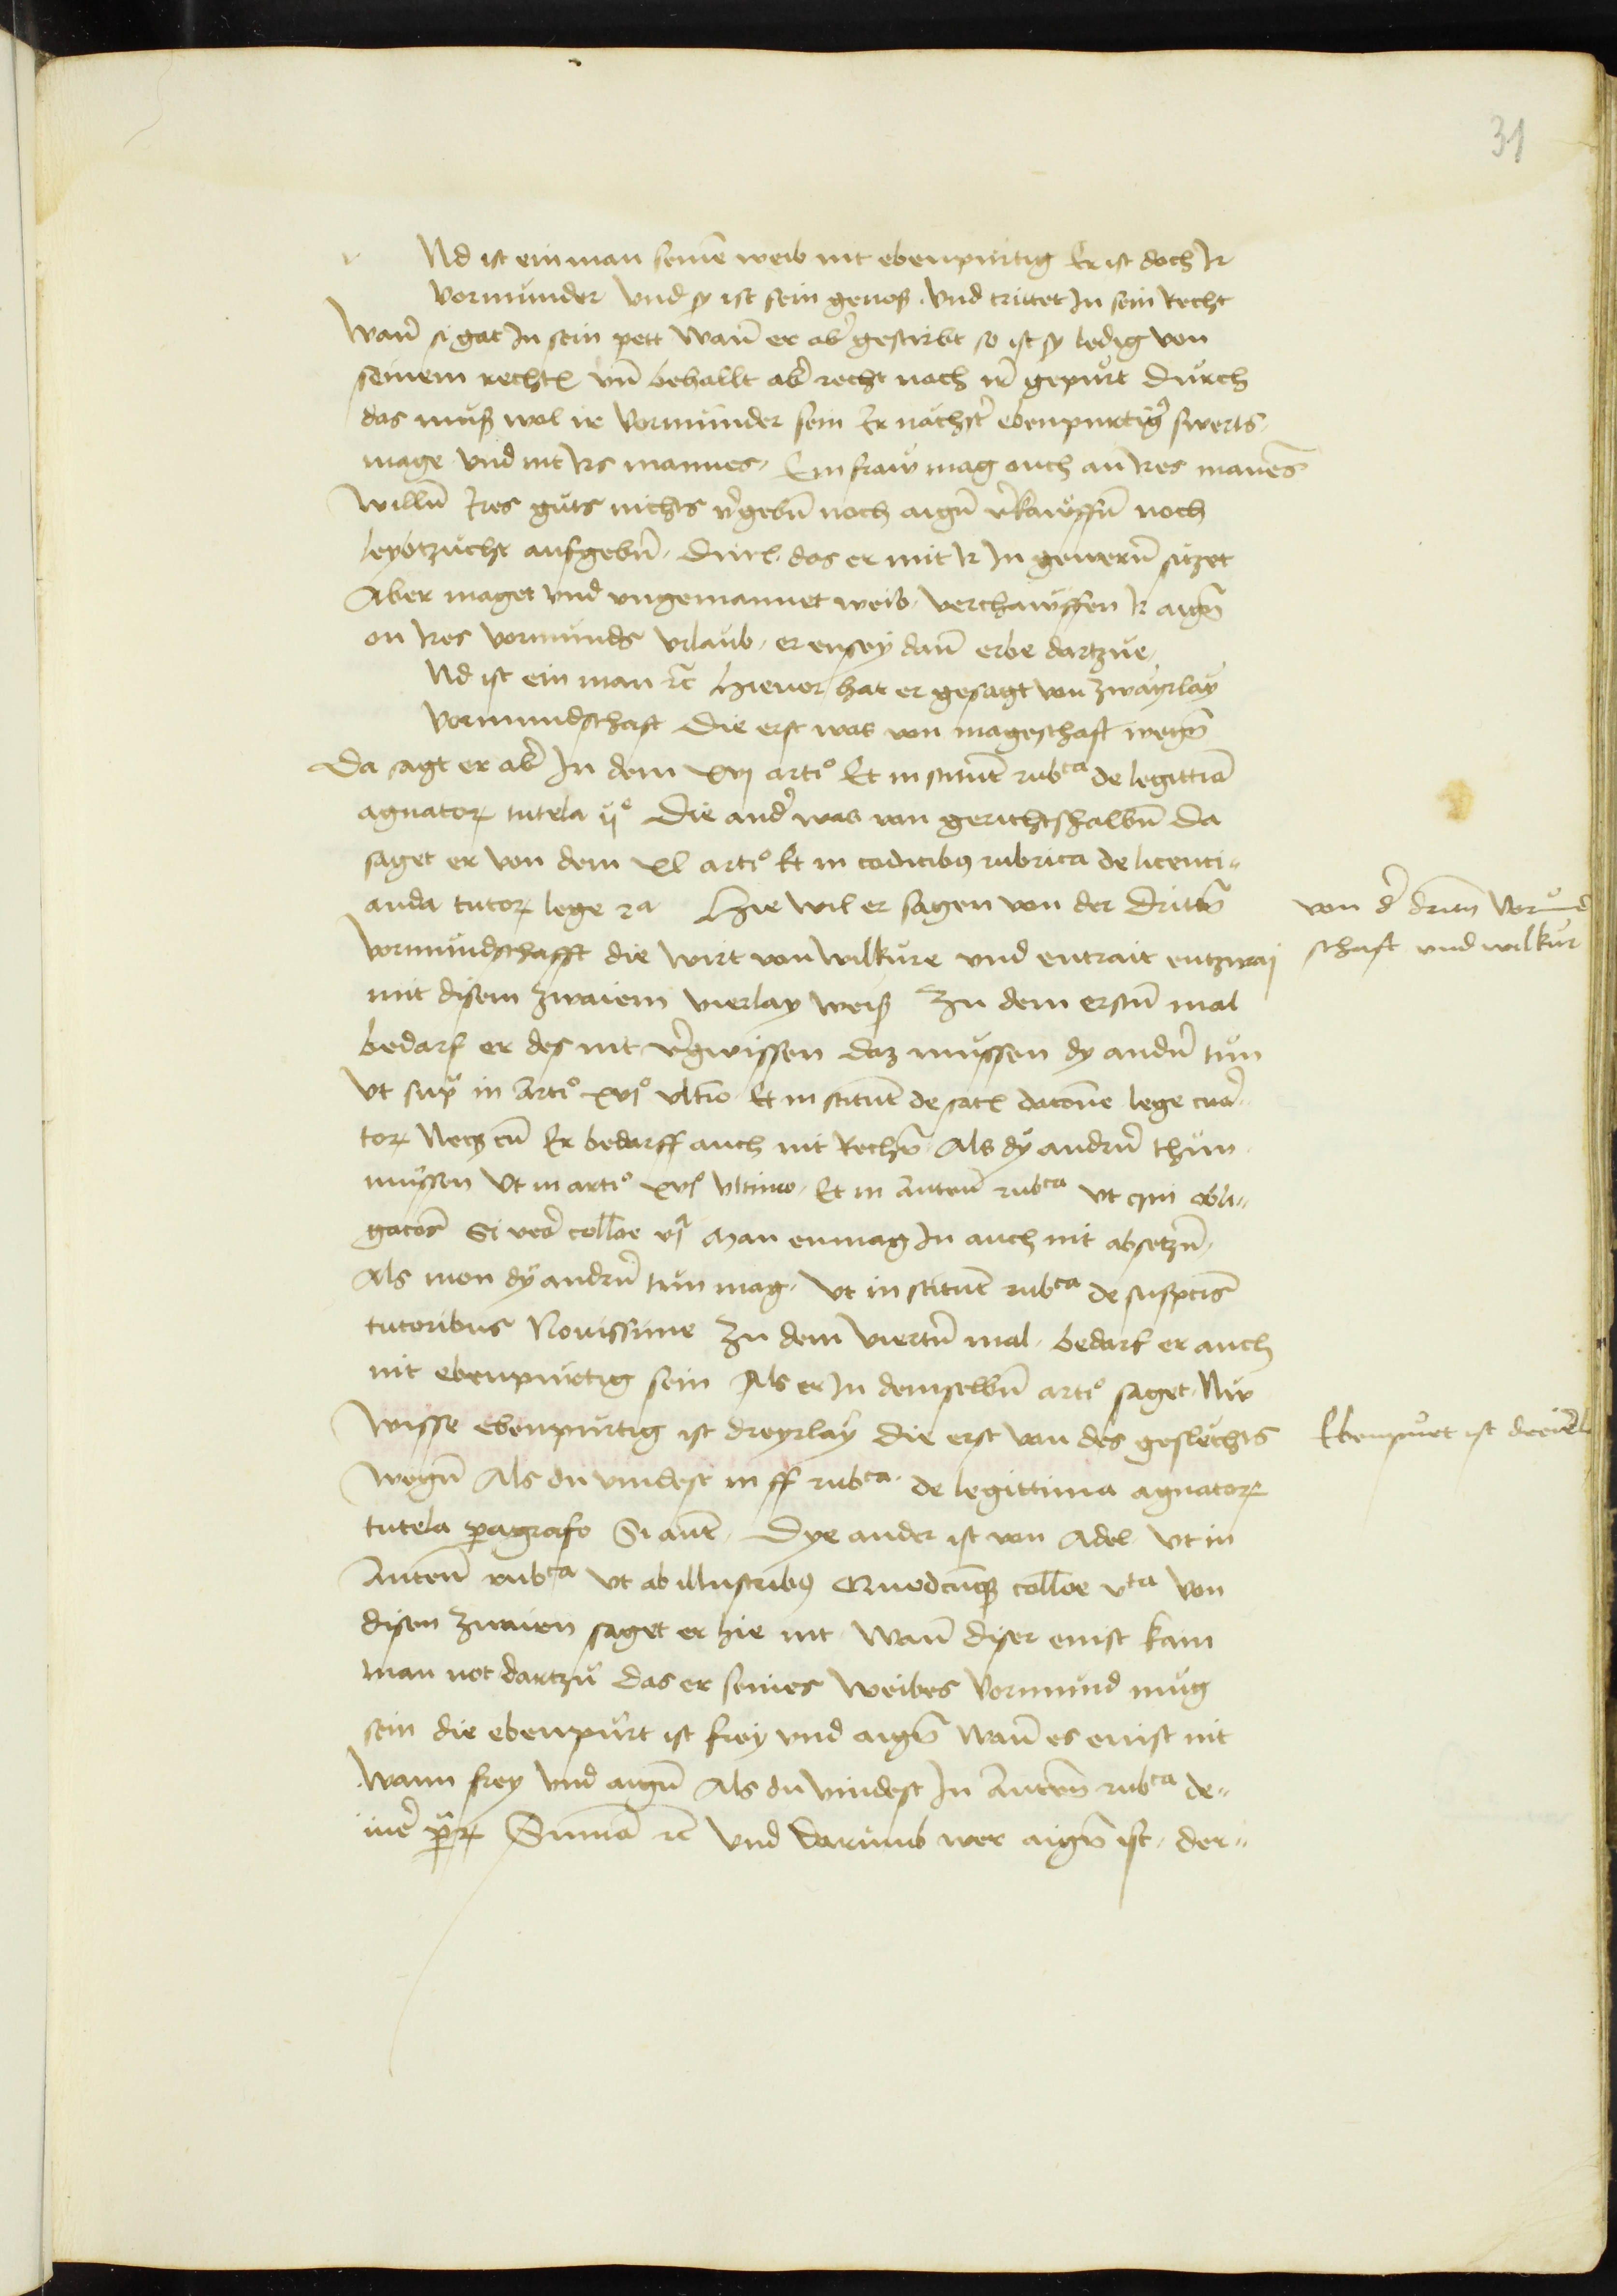 31
v Nd ist ein man seinē weib nit ebenpürtig Er ist doch Ir
vormunder Und sy ist sein genoß. Und trittet In sein Recht
Wañ si gat In sein pett Wañ er ab̄ gestirbt so ist sy ledig von
seinem recht vñ behallt ab̄ recht nach ir̄ gepurt Durch
das muß wol ir Vormunder sein Ir nachst̄ ebenpurtiḡ swerts
mage und nit Irs mannes. Ein fraw mag auch an Ires mānes
willn̄ Ires guts nichts v̄gebn̄ noch aign̄ v̄kauffn̄ noch
leybtzucht aufgebn̄. Durch das er mit Ir In gewern̄ sitzet
Aber maget und ungemannet weib. verchauffen Ir aign̄
on Ires vormunds Urlaub. er ensey dañ erbe dartzue.
Nd ist ein man rc̄ Hieuor hat er gesagt von zwayrlay
Vormundschaft Die erst was von mageschaft wegn̄
Da sagt er ab̄ In dem xvj arti° Et in stitut̄ rubca de legittia̅
agnator tutela ij° Die and̄ was von gerichtshalbn̄ Da
saget er von dem xl arti° Et in codicibꝫ rubrica de licenti-
anda tutor lege 2a Hie wil er sagen von der dritn̄
vormundschafft die wirt von wilkure und entrait entzwaj
mit disem zwaiem vierlay weiß Zu dem erstn̄ mal
bedarf er des nit v̄gwissen daz mussen dy andn̄ tun
Ut sup̄ in Arti° xvj° ultio Et in stitut̄ de sat datione lege cura-
tor Necz cū Er bedarff auch nit Rechn̄ Als dy andrn̄ thun
mussen Ut in arti° xvj ultimo. Et in Auten̄ rubca Ut qui obli-
gatos̄ Si ver̄ colloe vj man enmag In auch nit absetzn̄
Als mon dy andrn̄ tun mag. Ut in stitut̄ rubca de suspetis̄
tutoribus Nouissime Zu dem Viertn̄ mal. bedarf er auch
nit ebenpurtig sein Als er In demselbn̄ arti° saget. Nu
wisse ebenpurtig ist dreyrlay Die erst von des geslechts
wegn̄ Als du vindest in ff rubca. de legittima agnator
tutela p̄agrafo Si aut̄. Dye ander ist von Adel Ut in
Auten̄ rubca Ut ab illustribꝫ Quodcunqꝫ colloe vta von
disen zwaien saget er hie nit Wañ diser enist kain
man not dartzu Das er seines weibes Vormund mug
sein die ebenpurt ist frey und aign̄ Wañ es enist nit
Wann frey und aign̄ Als du vindest In Auten̄ rubca de-
iur̄ p̄ Sum̄a rc̄ Und darumb wer aign̄ ist. der-
von d̄ dritn̄ Vormund
schaft und wilkur
Ebenpurt ist dreierl